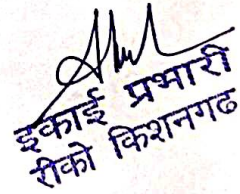 इकाई प्रभारी
रीको किशनगढ